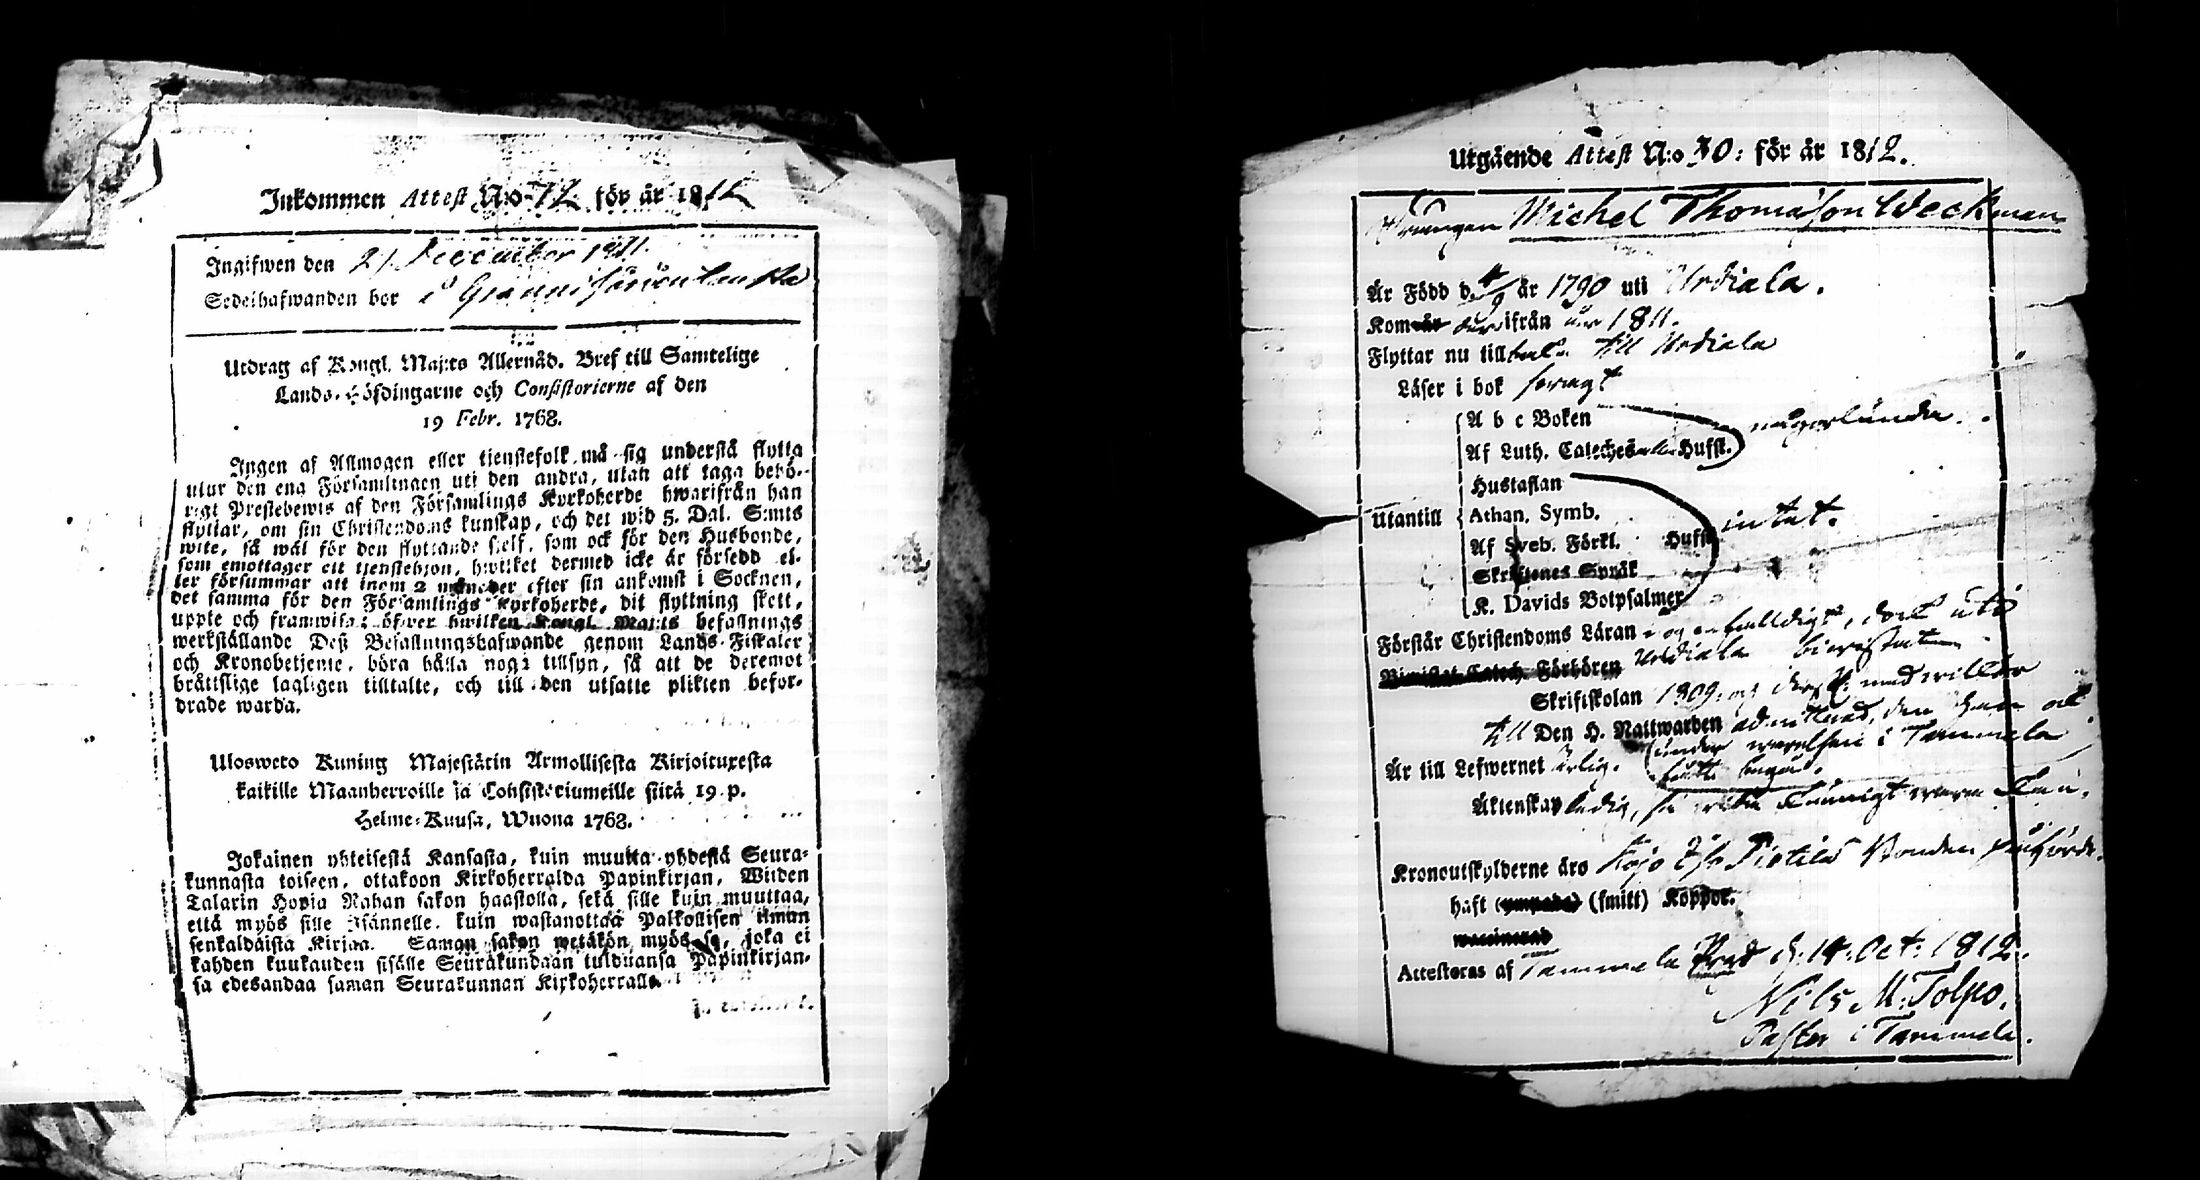 Inkommen Attest N:o 72 för år 1812
Ingifwen den 21 December 1811.
Sedelhafwanden bor i
Utdrag af Kongl. Maj:ts Allernåd. Bref till Samtelige
Lands-Höfdingarne och Consistorierne af den
19 Febr. 1768.
Ingen af Allmogen eller tjenstefolk må sig understå flytta
utur den ena Församlingen uti den andra, utan att taga behö-
rigt Prestebewis af den Församlings Kyrkoherde hwarifrån han
flyttar, om sin Christendoms kunskap, och det wid 5. Dal. S:mts
wite, så wäl för den flyttande sjelf, som ock för den Husbonde,
som emottager ett tjenstehjon, hwilket dermed icke är försedd el-
ler försummar att inom 2 månader efter sin ankomst i Socknen,
det samma för den Församlings Kyrkoherde, dit flyttning skett,
uppte och framwisa; öfwer hwilken Kongl. Maj:ts befallnings
werkställande Deß Befallningshafwande genom Lands-Fiskaler
och Kronobetjente, böra hålla noga tillsyn, så att de deremot
bråttslige lagligen tilltalte, och till den utsatte plikten befor-
drade warda.
Ulosweto Kuning Majestätin Armollisesta Kirjoituxesta
kaikille Maanherroille ja Consistoriumeille siitä 19 p.
Helme-Kuusa, Wuona 1768.
Jokainen yhteisestä Kansasta, kuin muutta yhdestä Seura-
kunnasta toiseen, ottakoon Kirkoherralda Papinkirjan, Wiiden
Talarin Hopia Rahan sakon haastolla, sekä sille kuin muuttaa,
että myös sille Isännelle, kuin wastanottaa Palkollisen ilman
senkaldaista Kirjaa. Saman sakon wetäkön myös se, joka ei
kahden kuukauden sisälle Seurakundaan tulduansa Papinkirjan-
sa edesandaa saman Seurakunnan Kirkoherralla.
Utgående Attest N:o 30: för år 1812.
Drängen Michel Thomasson Weckman
År Född d. 4/9 år 1790 uti Urdiala.
Kom ifrån 1811.
Flyttar nu till till Urdiala
Läser i bok swagt
A b c Boken
Af Luth. Cateches Hufst. någorlunda.
Hustaflan
Utantill Athan. Symb. intet.
Af Sveb. Förkl. Hufst
Skriftenes Språk
K. Davids Botpsalmer
Förstår Christendoms Läran enfalldigt, uti
Bivistat Catech. Förhören Urdiala biwistat
Skriftskolan 1809. med willkor
till Den H. Nattwarden admitterad, den
under warelsen i Tammela
Är till Lefwernet ärlig.
Äktenskap ledig,
Kronoutskylderne äro Bonden
haft (smitt) Koppor.
Attesteras af Tammela Prgd d. 14. Oct: 1812.
Nils M: Tolpo.
Pastor i Tammela.